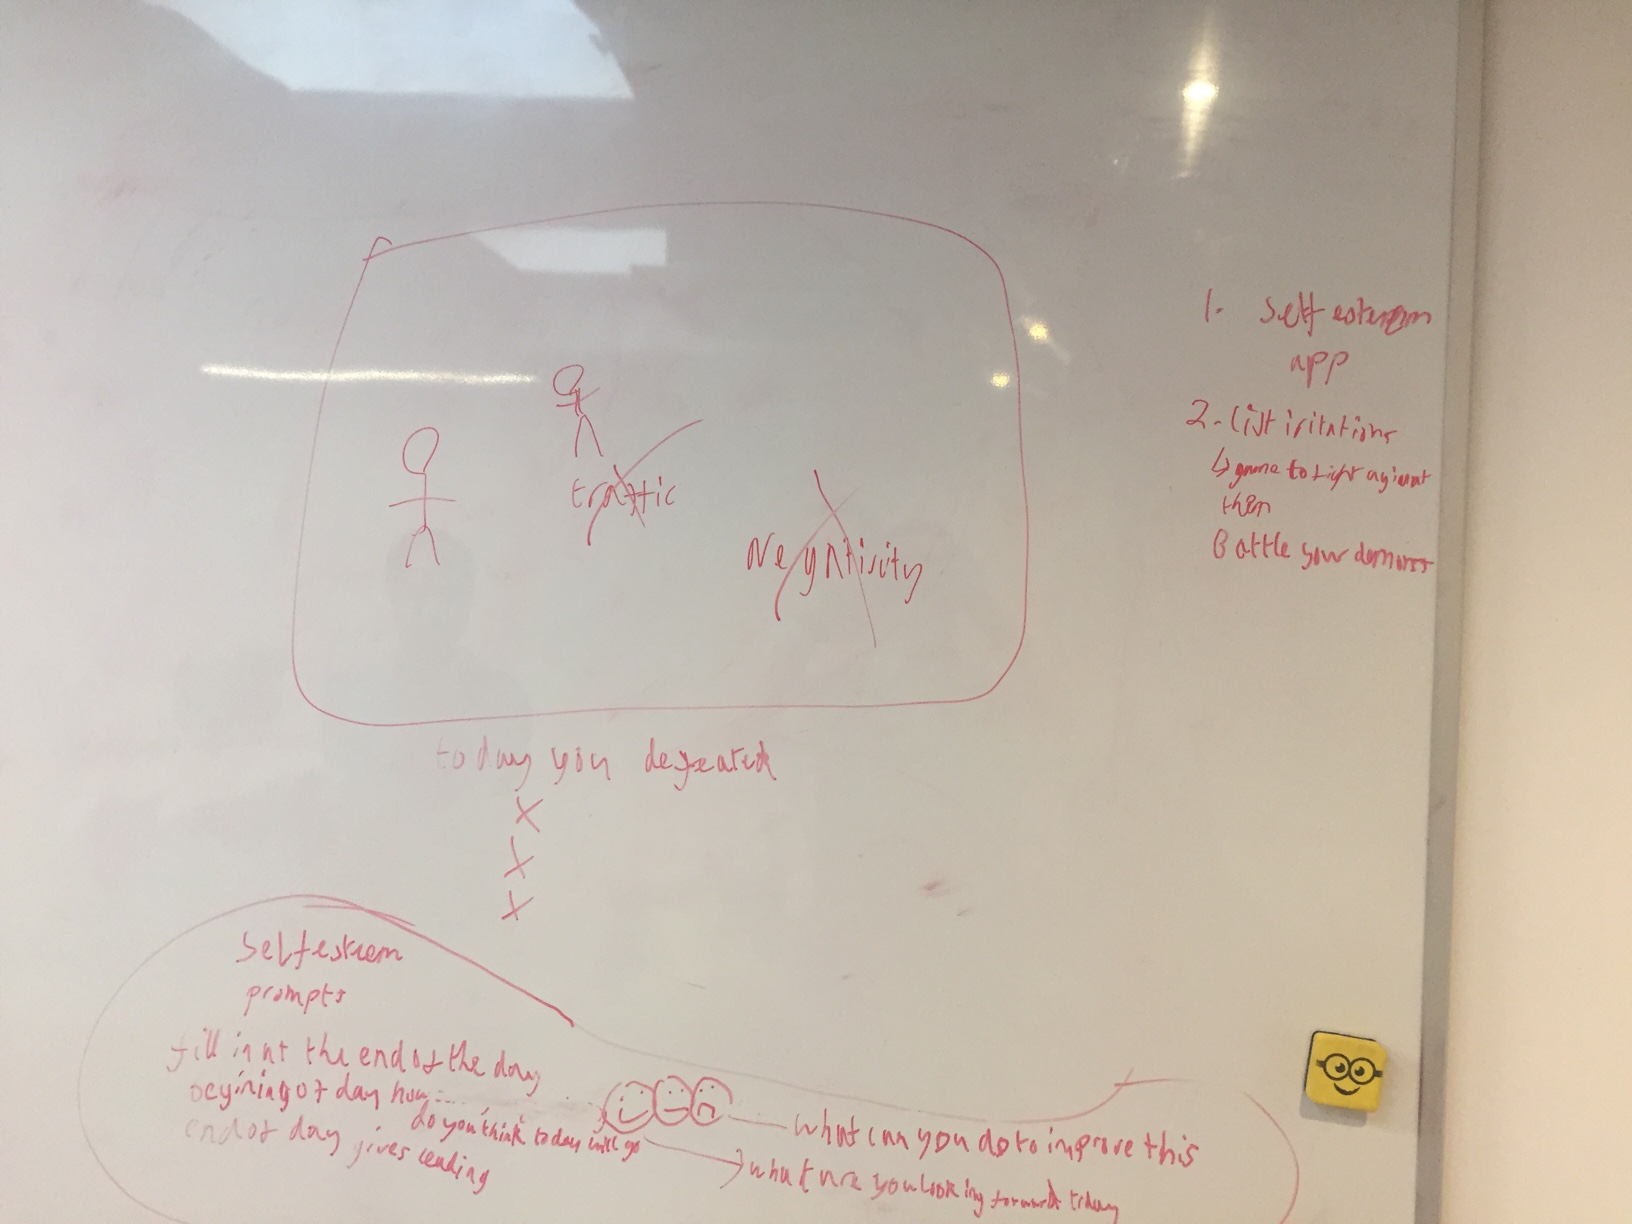 1. Self esteem
app
2. List iritations
↳ game to fight against
them
Battle your demons
traffic
Negativity
today you defeated
X
X
X
Self esteem
prompts
fill in at the end of the day
begining of day how...
do you think today will go
end of day gives
what can you do to improve this
what are you looking forward today